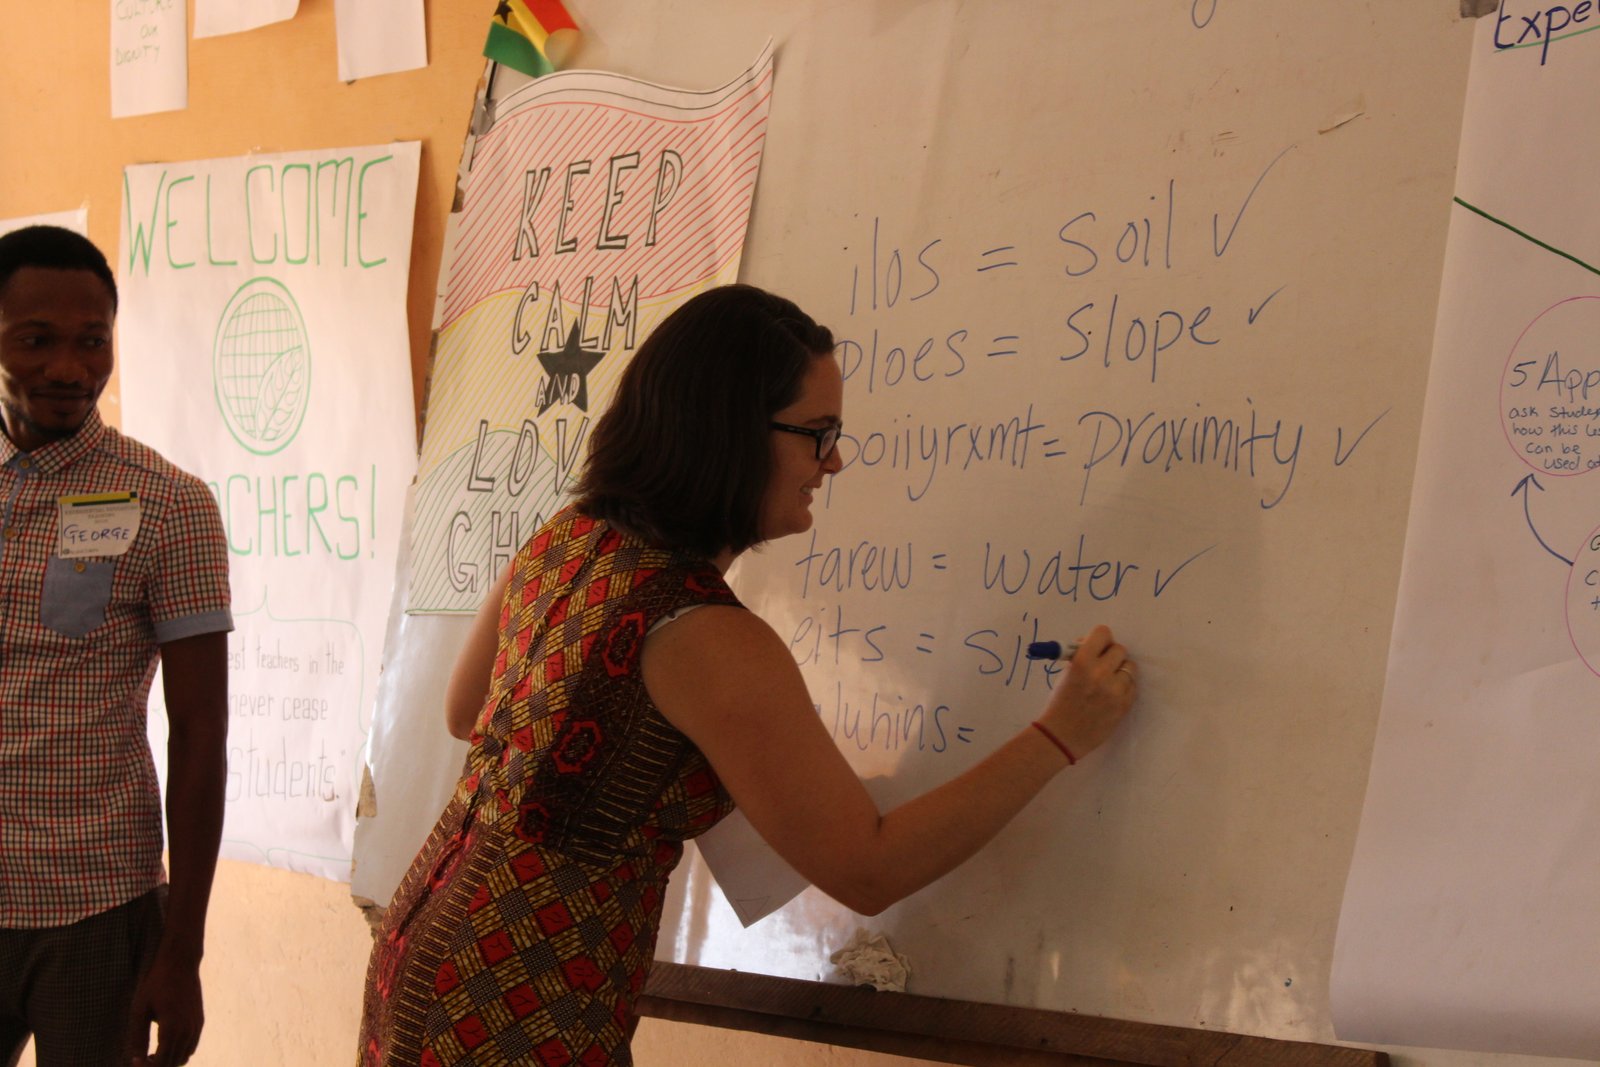 CULTURE
OUR
DIGNITY
WELCOME
TEACHERS!
teachers in the
never cease
students."
GEORGE
KEEP
CALM
AND
LOV
GH
ilos = Soil ✓
ploes = Slope ✓
poiiyrxmt = proximity ✓
tarew = water ✓
eits = site
luhins =
Expe
5 App
ask stude
how this les
can be
used